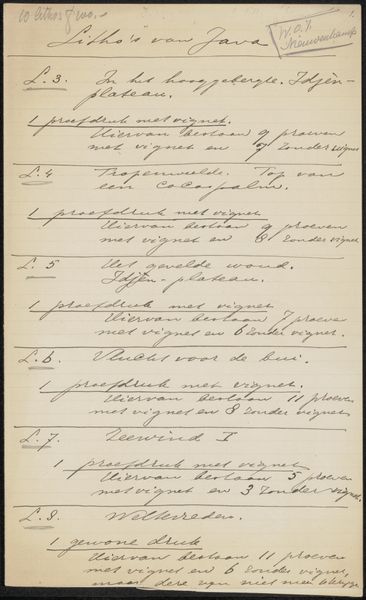 10 litho's f 200.-
1.
W.O.J.
Nieuwenkamp
Litho's van Java
L. 3. In het hooggebergte. Idjèn-
plateau.
1 proefdruk met vignet.
Hiervan bestaan 9 proeven
met vignet en 9 zonder vignet
L. 4 Tropenweelde. Top van
een cocospalm.
1 proefdruk met vignet
Hiervan bestaan 9 proeven
met vignet en 8 zonder vignet
L. 5 Het gevelde woud.
Idjèn-plateau.
1 proefdruk met vignet
Hiervan bestaan 7 proeven
met vignet en 6 zonder vignet.
L. 6. Vlucht voor de bui.
1 proefdruk met vignet.
Hiervan bestaan 11 proeven
met vignet en 8 zonder vignet
L. 7. Zeewind I
1 proefdruk met vignet
Hiervan bestaan 5 proeven
met vignet en 3 zonder vignet.
L. 8. Weltevreden.
1 gewone druk
Hiervan bestaan 11 proeven
met vignet en 6 zonder vignet,
maar deze zijn niet meer te